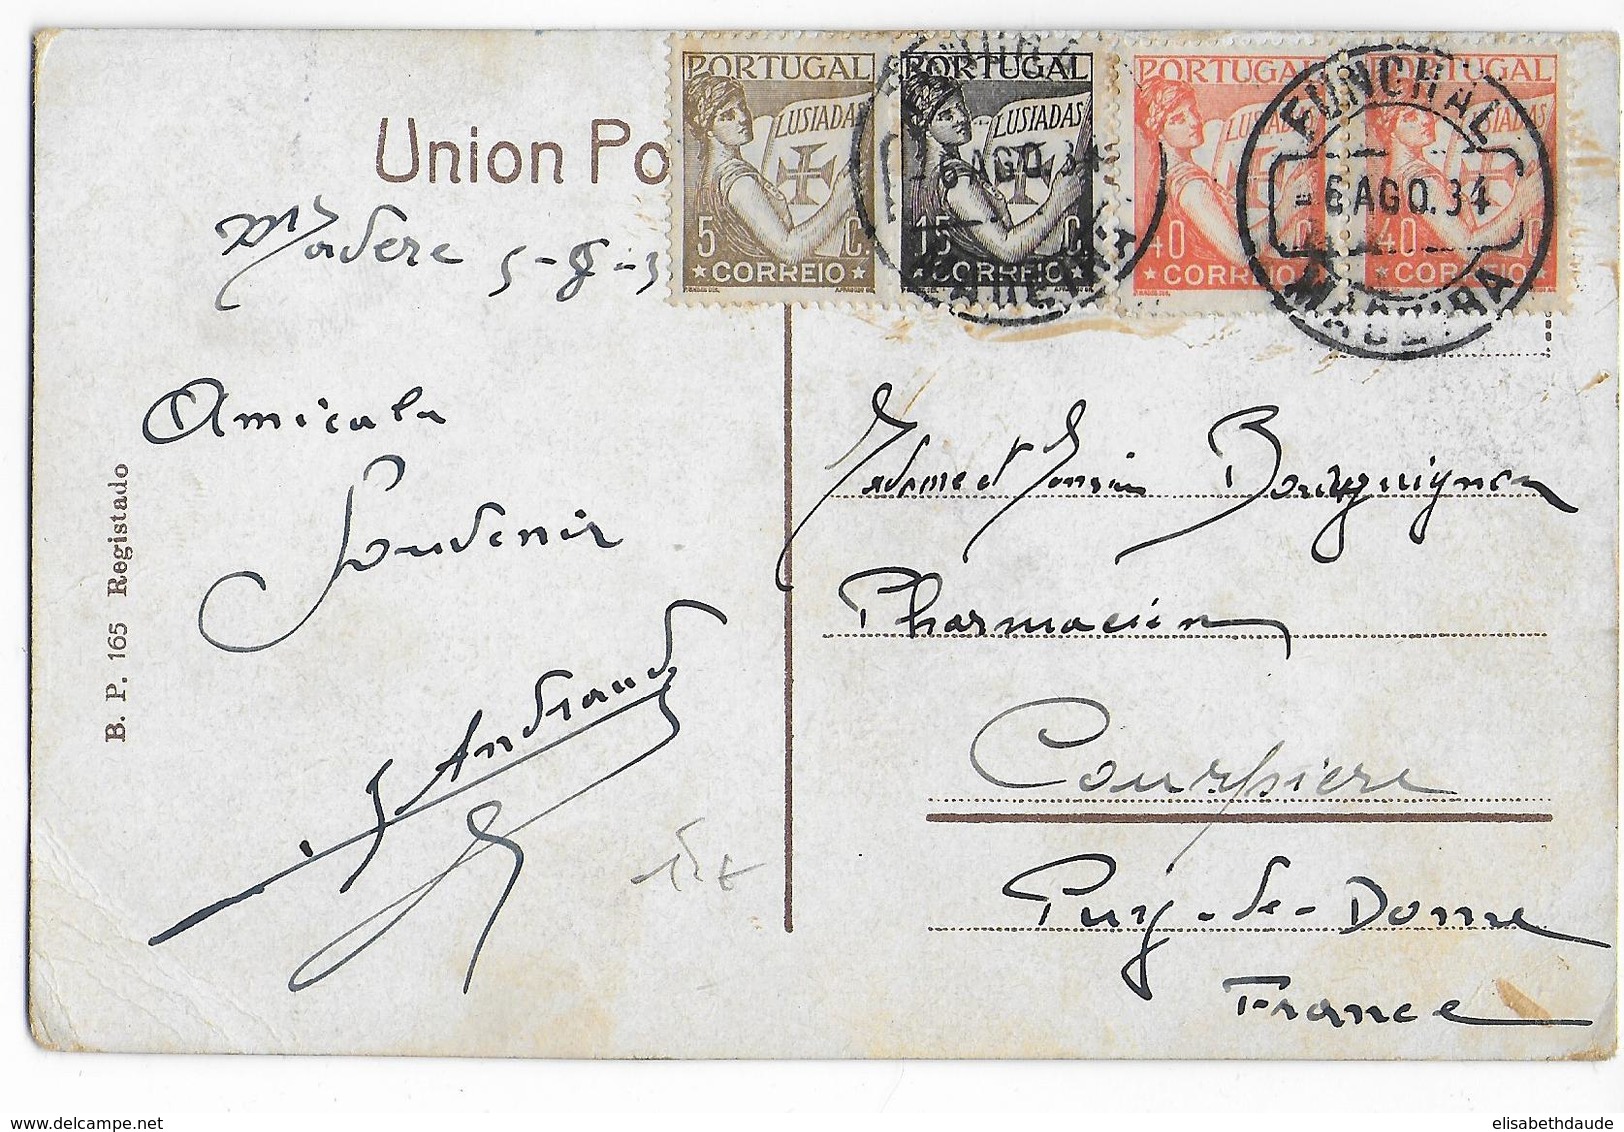 Union Po
PORTUGAL
LUSIADAS
5 C.
CORREIO
PORTUGAL
LUSIADAS
15 C.
CORREIO
PORTUGAL
LUSIADAS
40 C.
CORREIO
PORTUGAL
LUSIADAS
40 C.
CORREIO
FUNCHAL
6 AGO. 34
MADEIRA
FUNCHAL
- 6 AGO. 34
MADEIRA
Madere 5-8-3
Amicale
Souvenir
Andraud
B. P. 165 Registado
Madame et Monsieur Bourguignon
Pharmacien
Courpiere
Puy-de-Dome
France
elisabethdaude